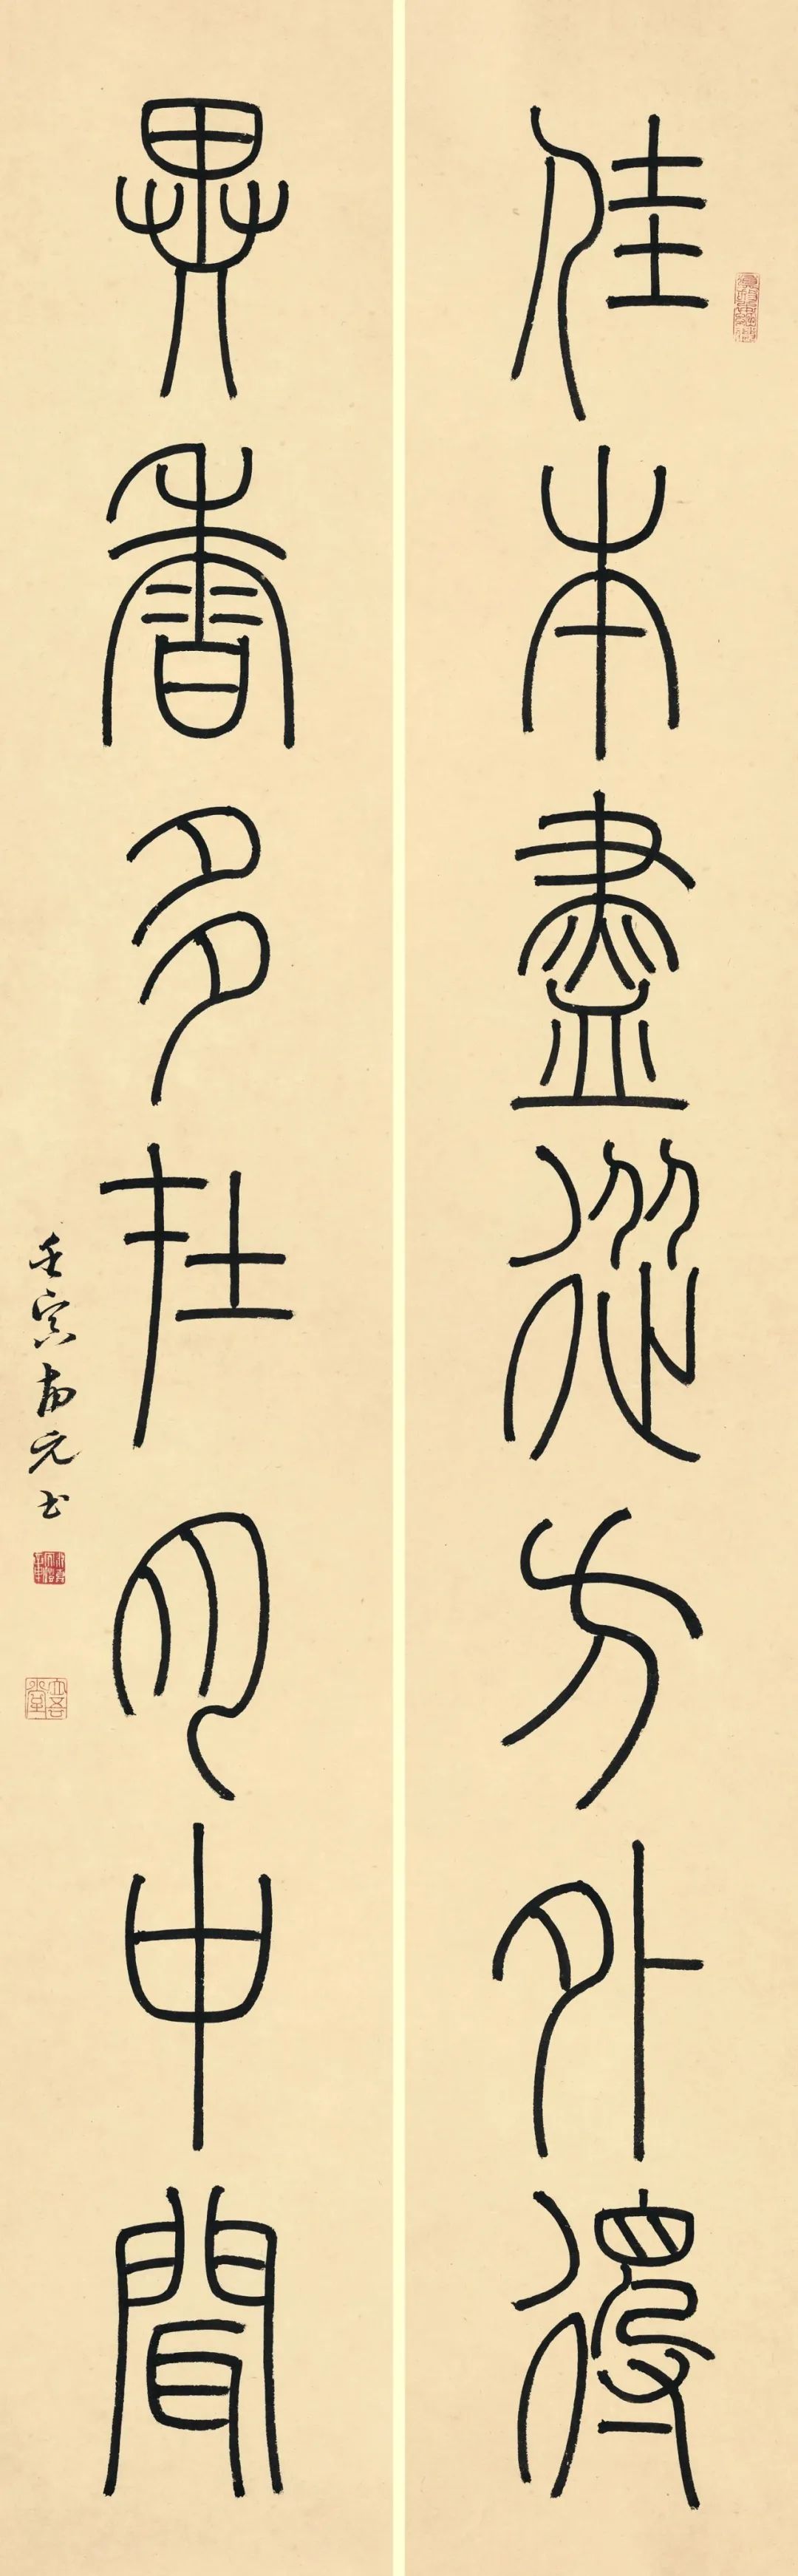 佳本盡從方外得
異香多在月中聞
壬寅南元書